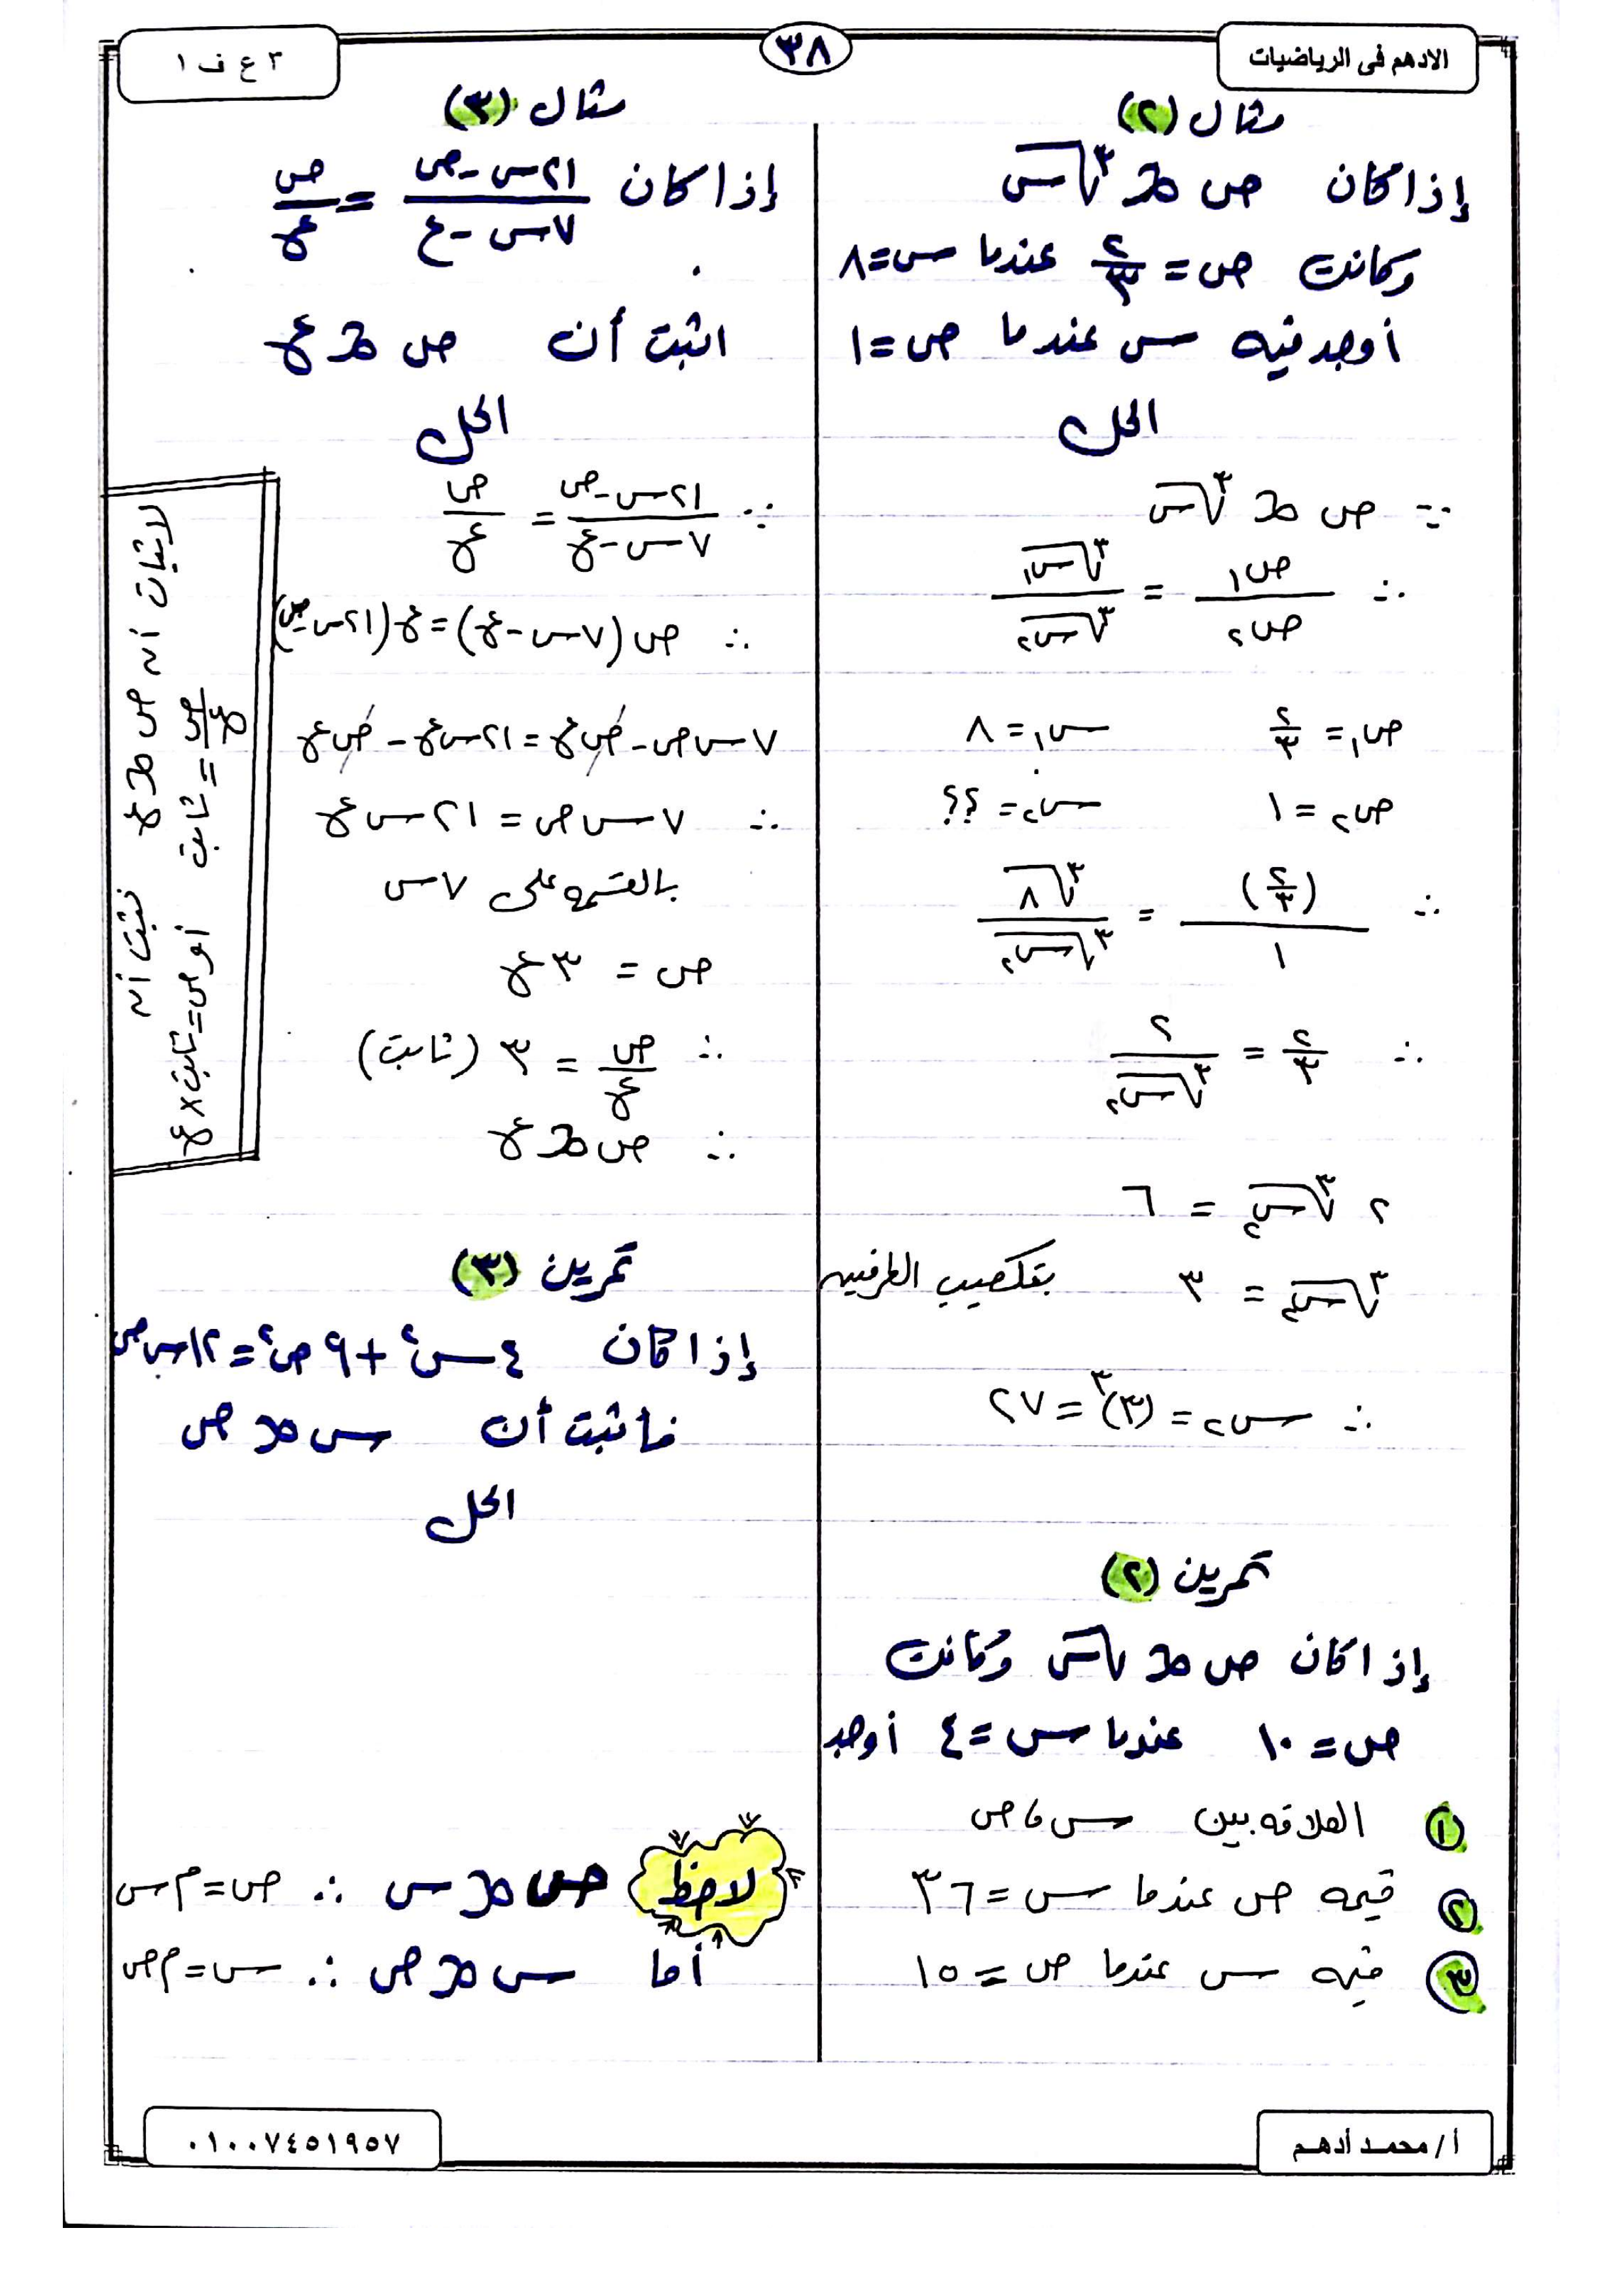 الادهم فى الرياضيات
٣٨
٣ ع ف ١
مثال (٢)
إذا كان ص ∝ ∛س
وكانت ص = ٢/٣ عندما س = ٨
أوجد قيمه س عندما ص = ١
الحل
∵ ص ∝ ∛س
∴ ص١/ص٢ = ∛س١/∛س٢
ص١ = ٢/٣ س١ = ٨
ص٢ = ١ س٢ = ؟؟
∴ (٢/٣)/١ = ∛٨/∛س٢
∴ ٢/٣ = ٢/∛س٢
٢ ∛س٢ = ٦
∛س٢ = ٣ بتكعيب الطرفين
∴ س٢ = (٣)³ = ٢٧
تمرين (٢)
إذا كان ص ∝ √س وكانت
ص = ١٠ عندما س = ٤ أوجد
١ العلاقه بين س ، ص
٢ قيمه ص عندما س = ٣٦
٣ قيمه س عندما ص = ١٥
مثال (٣)
إذا كان (٢١س - ص)/(٧س - ع) = ص/ع
اثبت أن ص ∝ ع
الحل
∵ (٢١س - ص)/(٧س - ع) = ص/ع
∴ ص (٧س - ع) = ع (٢١س - ص)
٧س ص - ص ع = ٢١س ع - ص ع
∴ ٧س ص = ٢١ س ع
بالقسمه على ٧س
ص = ٣ ع
∴ ص/ع = ٣ (ثابت)
∴ ص ∝ ع
لاثبات أن ص ∝ ع نثبت أن
ص/ع = ثابت أو ص = ثابت × ع
تمرين (٣)
إذا كان ٤س² + ٩ص² = ١٢س ص
فاثبت أن س ∝ ص
الحل
لاحظ ص ∝ س ∴ ص = م س
أما س ∝ ص ∴ س = م ص
أ / محمـد أدهـم
٠١٠٠٧٤٥١٩٥٧